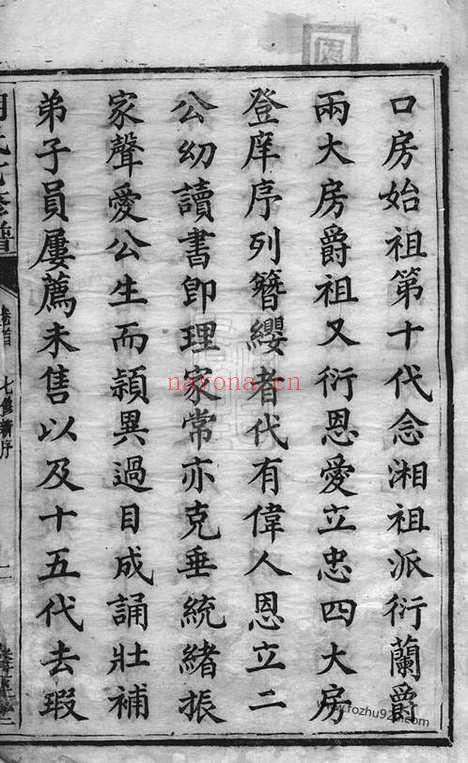 口房始祖第十代念湘祖派衍蘭爵
兩大房爵祖又衍恩愛立忠四大房
登庠序列簪纓者代有偉人恩立二
公幼讀書即理家常亦克垂統緒振
家聲愛公生而頴異過目成誦壯補
弟子員屢薦未售以及十五代去瑕
氏七修譜
卷首
七修續序
nayona.cn
www.fozhu920.com